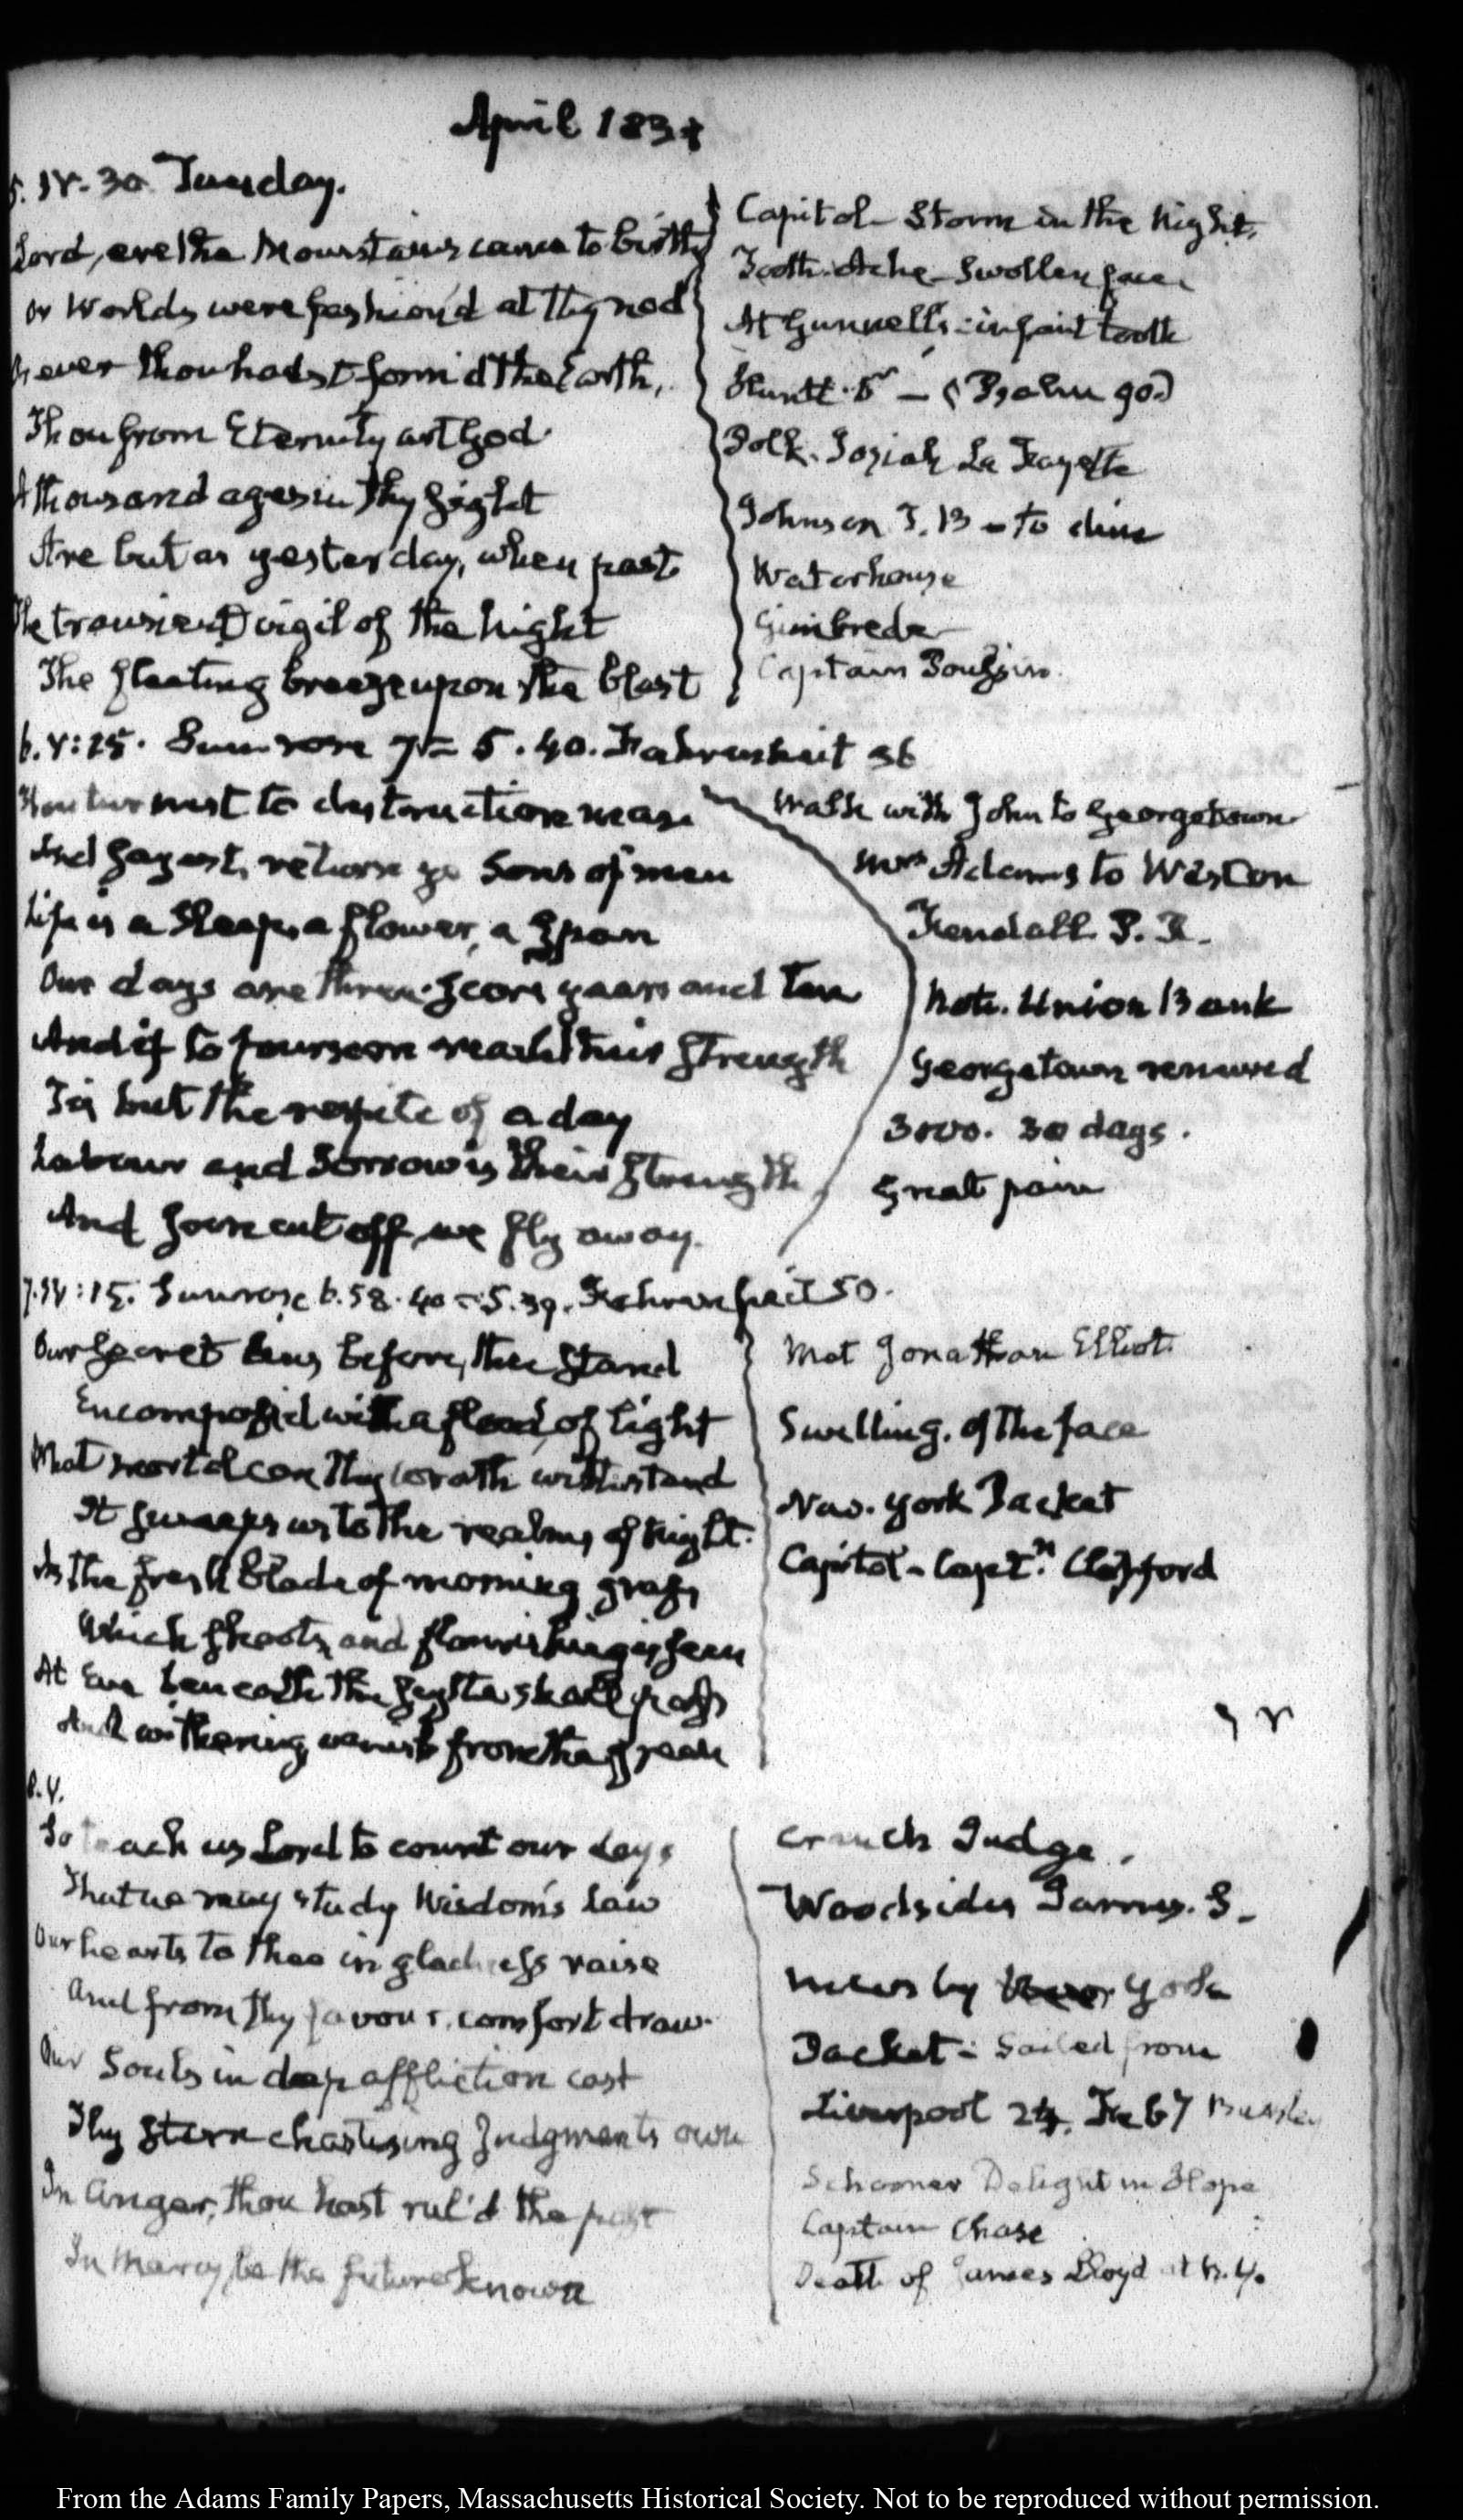 April 1831
5. IV. 30 Tuesday.
Lord, ere the Mountains came to birth
Or Worlds were fashion'd at thy nod
Or ever thou hadst form'd the Earth,
Thou from Eternity art God
A thousand ages in thy sight
Are but as yesterday, when past
The transient vigil of the night
The fleeting breeze upon the blast
Capitol — Storm in the Night.
Tooth-Ache — Swollen face
At Gunnell's: infant tooth
Huntt. Dr — (Psalm 90)
Polk. Josiah La Fayette
Johnson J. B — to dine
Waterhouse
Gimbrede
Captain
6. V: 15. Sun rose 7 = 5. 40. Fahrenheit 36
Thou turnest to destruction man
And sayest, return ye Sons of men
Life is a Sleep, a flower, a Span
Our days are three-score years and ten
And if to fourscore reach their strength
Tis but the respite of a day
Labour and Sorrow is their strength
And soon cut off we fly away.
Walk with John to Georgetown
Mrs Adams to
Kendall
Note. Union Bank
Georgetown renewed
3000. 30 days.
Great pain
7. IV: 15. Sun rose 6. 58. 40 = 5. 39. Fahrenheit 50.
Our secret sins before thee stand
Encompass'd with a flood of light
What mortal can thy wrath withstand
It sweeps us to the realms of night.
As the fresh blade of morning grass
Which shoots, and flourishing is seen
At Eve beneath the scythe shall pass
And withering vanish from the green
Met Jonathan Elliot.
Swelling. of the face
New. York Packet
Capitol — Captn.
8. V.
So teach us Lord to count our days
That we may study Wisdom's law
Our hearts to thee in gladness raise
And from thy favour, comfort draw.
Our Souls in deep affliction cast
Thy stern chastising Judgments own
In anger, thou hast rul'd the past
In Mercy be the future known
Cranch Judge.
Woodsides James. S.
news by New York
Packet: Sailed from
Liverpool 24. Feby
Schooner Delight in Hope
Captain Chase
Death of James Lloyd at N. Y.
From the Adams Family Papers, Massachusetts Historical Society. Not to be reproduced without permission.